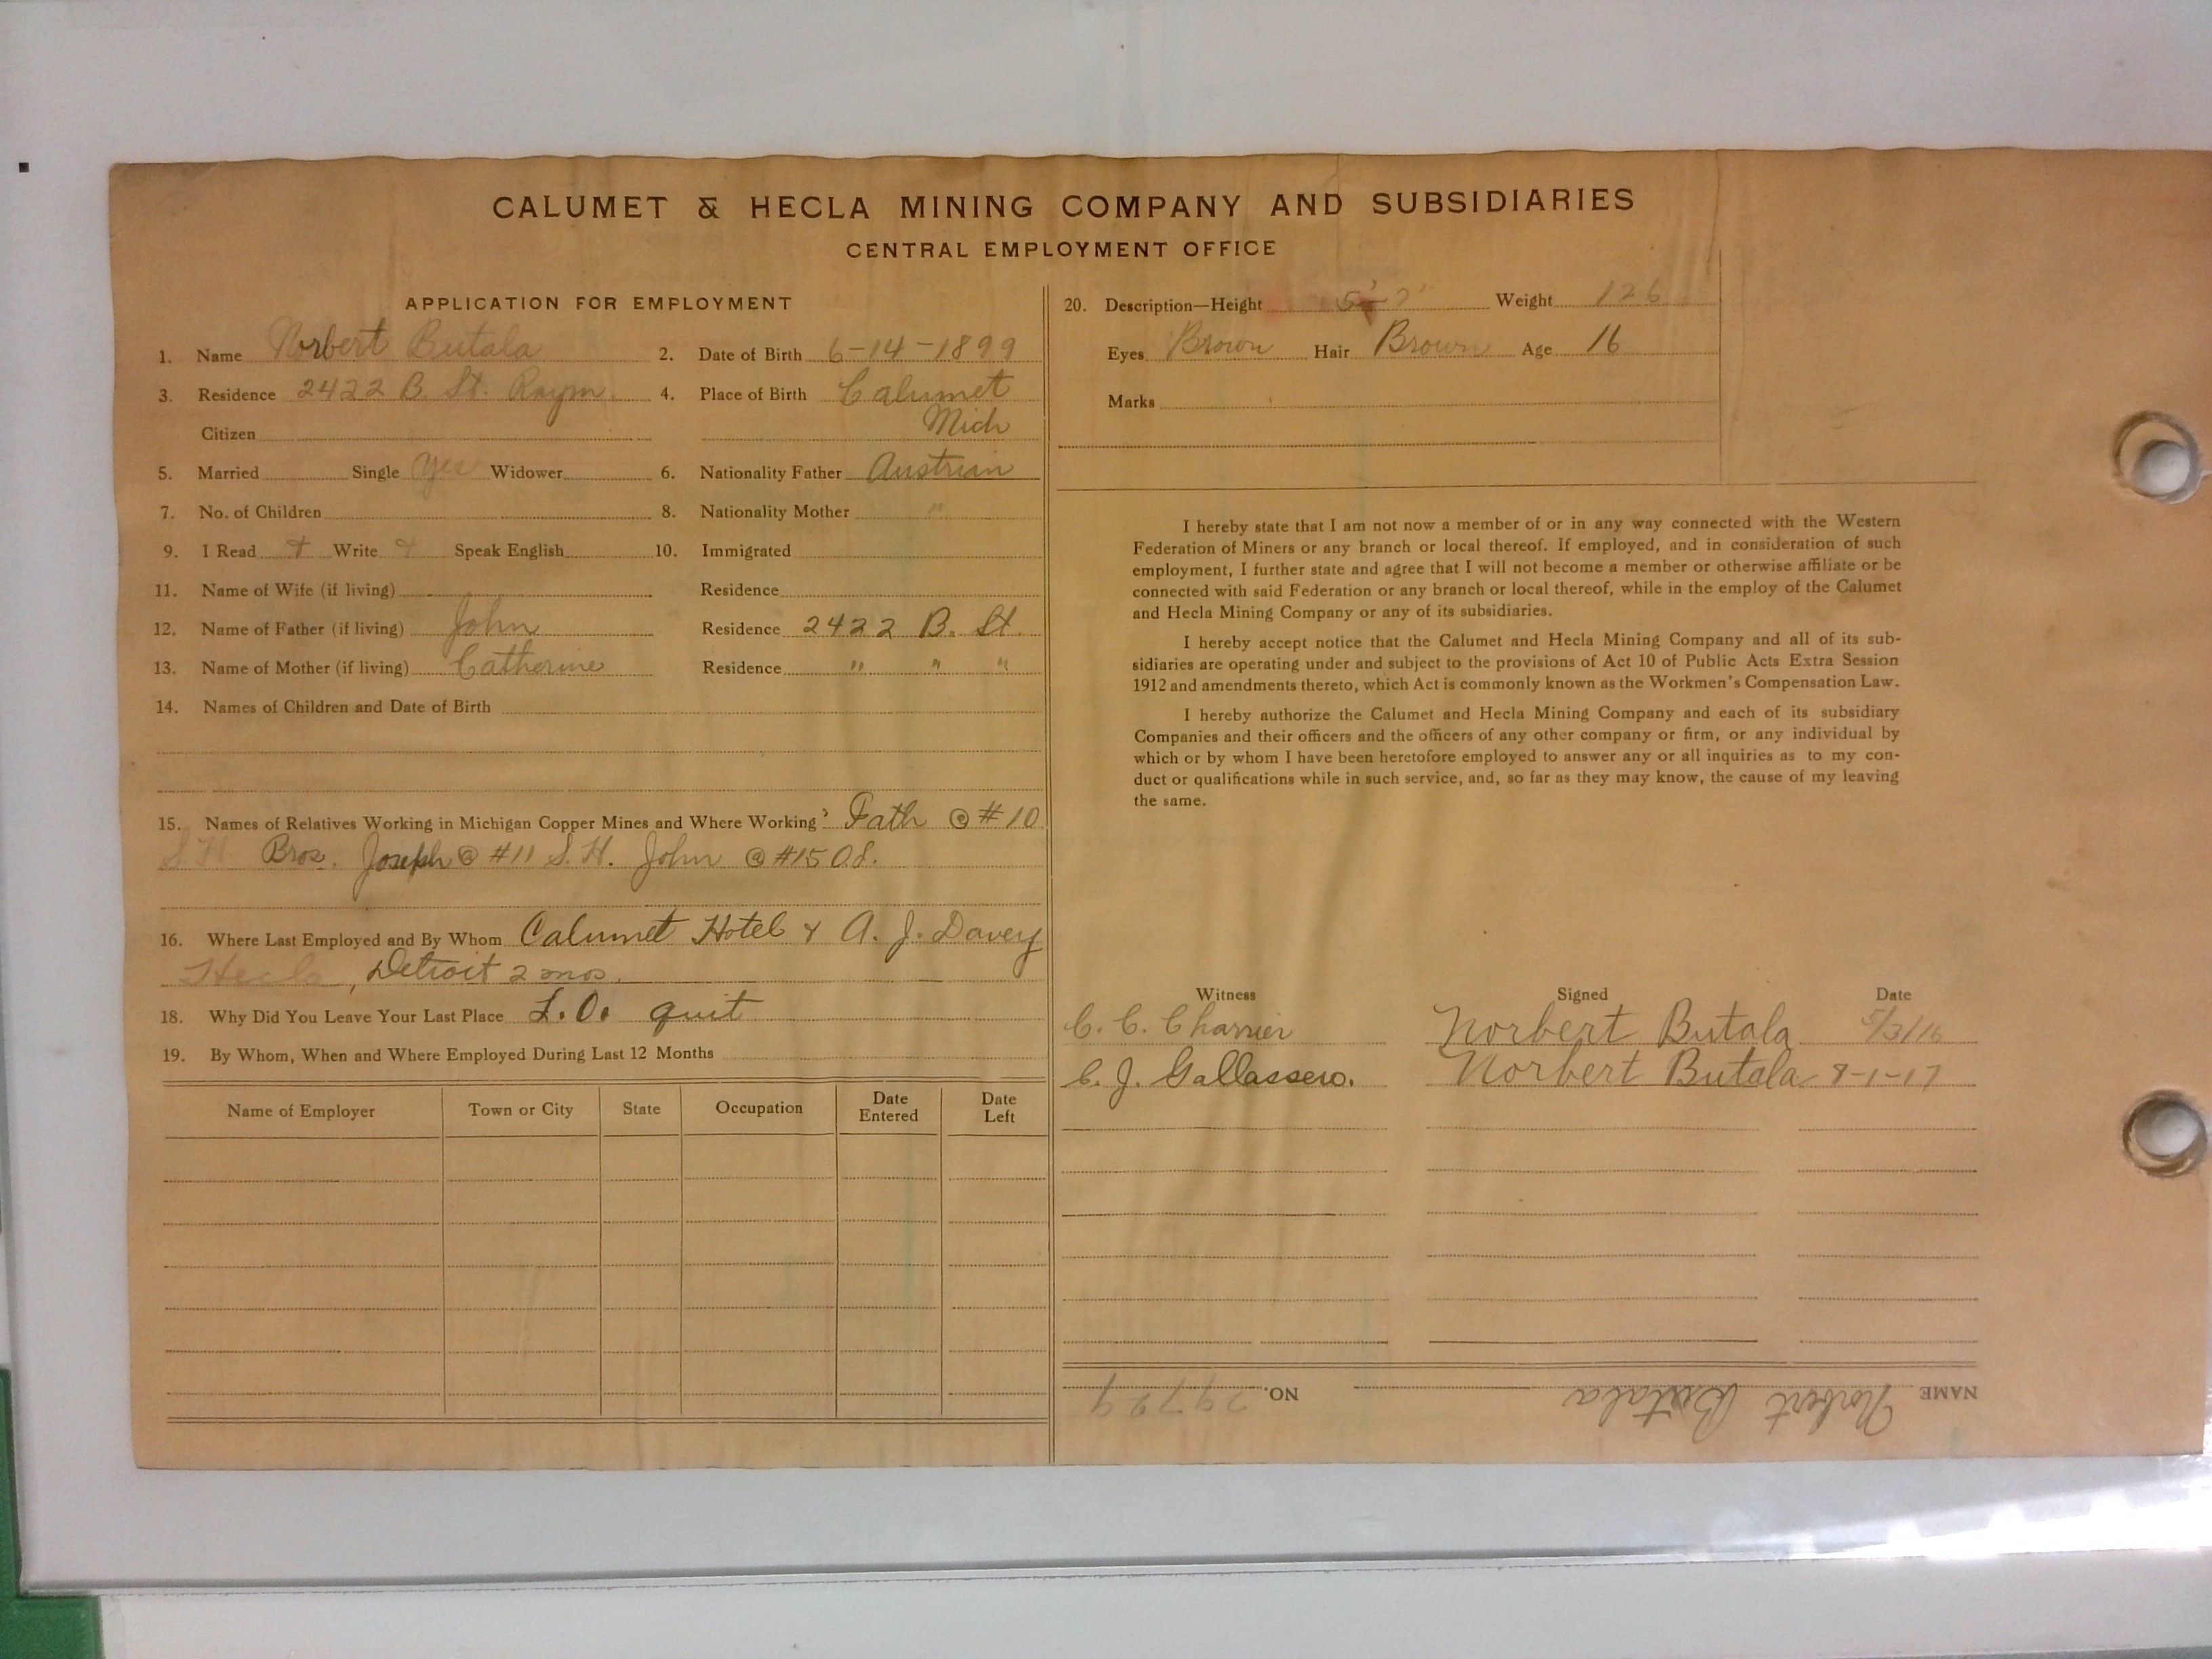 CALUMET & HECLA MINING COMPANY AND SUBSIDIARIES
CENTRAL EMPLOYMENT OFFICE
APPLICATION FOR EMPLOYMENT
1. Name Norbert Butala 2. Date of Birth 6-14-1899
3. Residence 2422 B. St. Raym. 4. Place of Birth Calumet
Citizen Mich
5. Married Single Yes Widower 6. Nationality Father Austrian
7. No. of Children 8. Nationality Mother "
9. I Read Write Speak English 10. Immigrated
11. Name of Wife (if living) Residence
12. Name of Father (if living) John Residence 2422 B. St.
13. Name of Mother (if living) Catherine Residence " " "
14. Names of Children and Date of Birth
15. Names of Relatives Working in Michigan Copper Mines and Where Working Fath @ #10
S. H. Bros. Joseph @ #11 S. H. John @ #15 O.S.
16. Where Last Employed and By Whom Calumet Hotel & A. J. Davey
Hecla, Detroit 2 mos.
18. Why Did You Leave Your Last Place L.O. quit
19. By Whom, When and Where Employed During Last 12 Months
Name of Employer Town or City State Occupation Date Entered Date Left
20. Description—Height 5' 7" Weight 126
Eyes Brown Hair Brown Age 16
Marks
I hereby state that I am not now a member of or in any way connected with the Western
Federation of Miners or any branch or local thereof. If employed, and in consideration of such
employment, I further state and agree that I will not become a member or otherwise affiliate or be
connected with said Federation or any branch or local thereof, while in the employ of the Calumet
and Hecla Mining Company or any of its subsidiaries.
I hereby accept notice that the Calumet and Hecla Mining Company and all of its sub-
sidiaries are operating under and subject to the provisions of Act 10 of Public Acts Extra Session
1912 and amendments thereto, which Act is commonly known as the Workmen's Compensation Law.
I hereby authorize the Calumet and Hecla Mining Company and each of its subsidiary
Companies and their officers and the officers of any other company or firm, or any individual by
which or by whom I have been heretofore employed to answer any or all inquiries as to my con-
duct or qualifications while in such service, and, so far as they may know, the cause of my leaving
the same.
Witness Signed Date
C. C. Charrier Norbert Butala 5/3/16
C. J. Gallassero. Norbert Butala 8-1-17
NAME Norbert Butala NO. 29729